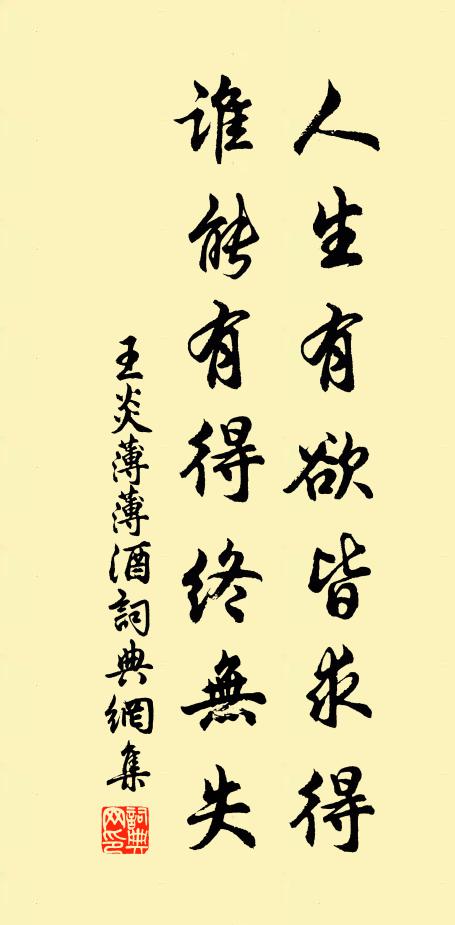 人生有欲皆求得
誰能有得終無失
王炎薄薄酒詞典網集
詞典網印